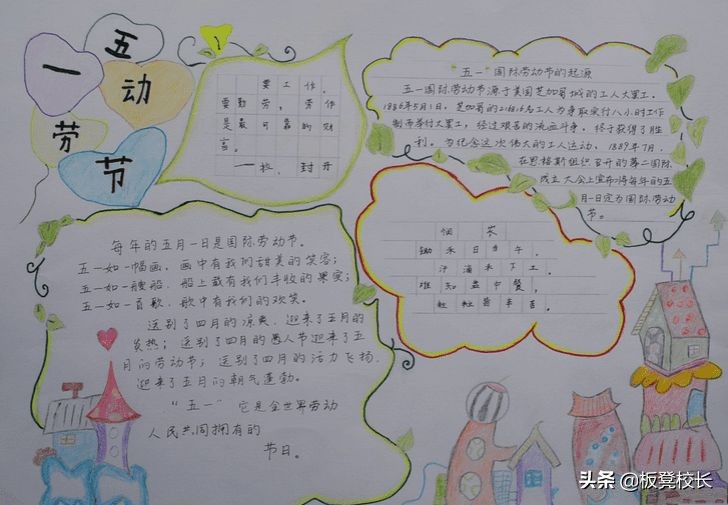 五
一
劳
动
节
要工作,
要勤劳;劳作
是最可靠的财
富。
——拉,封丹
“五一”国际劳动节的起源
五一国际劳动节源于美国芝加哥城的工人大罢工。
1886年5月1日,芝加哥的21.6万名工人为争取实行八小时工作
制而举行大罢工,经过艰苦的流血斗争,终于获得了胜
利。为纪念这次伟大的工人运动,1889年7月,
在恩格斯组织召开的第二国际
成立大会上宣布将每年的五
月一日定为国际劳动
节。
每年的五月一日是国际劳动节。
五一如一幅画,画中有我们甜美的笑容;
五一如一艘船,船上载有我们丰收的果实;
五一如一首歌,歌中有我们的欢笑。
送别了四月的凉爽,迎来了五月的
炎热;送别了四月的愚人节迎来了五
月的劳动节;送别了四月的活力飞扬,
迎来了五月的朝气蓬勃。
“五一”它是全世界劳动
人民共同拥有的
节日。
悯农
锄禾日当午,
汗滴禾下土。
谁知盘中餐,
粒粒皆辛苦。
头条 @板凳校长